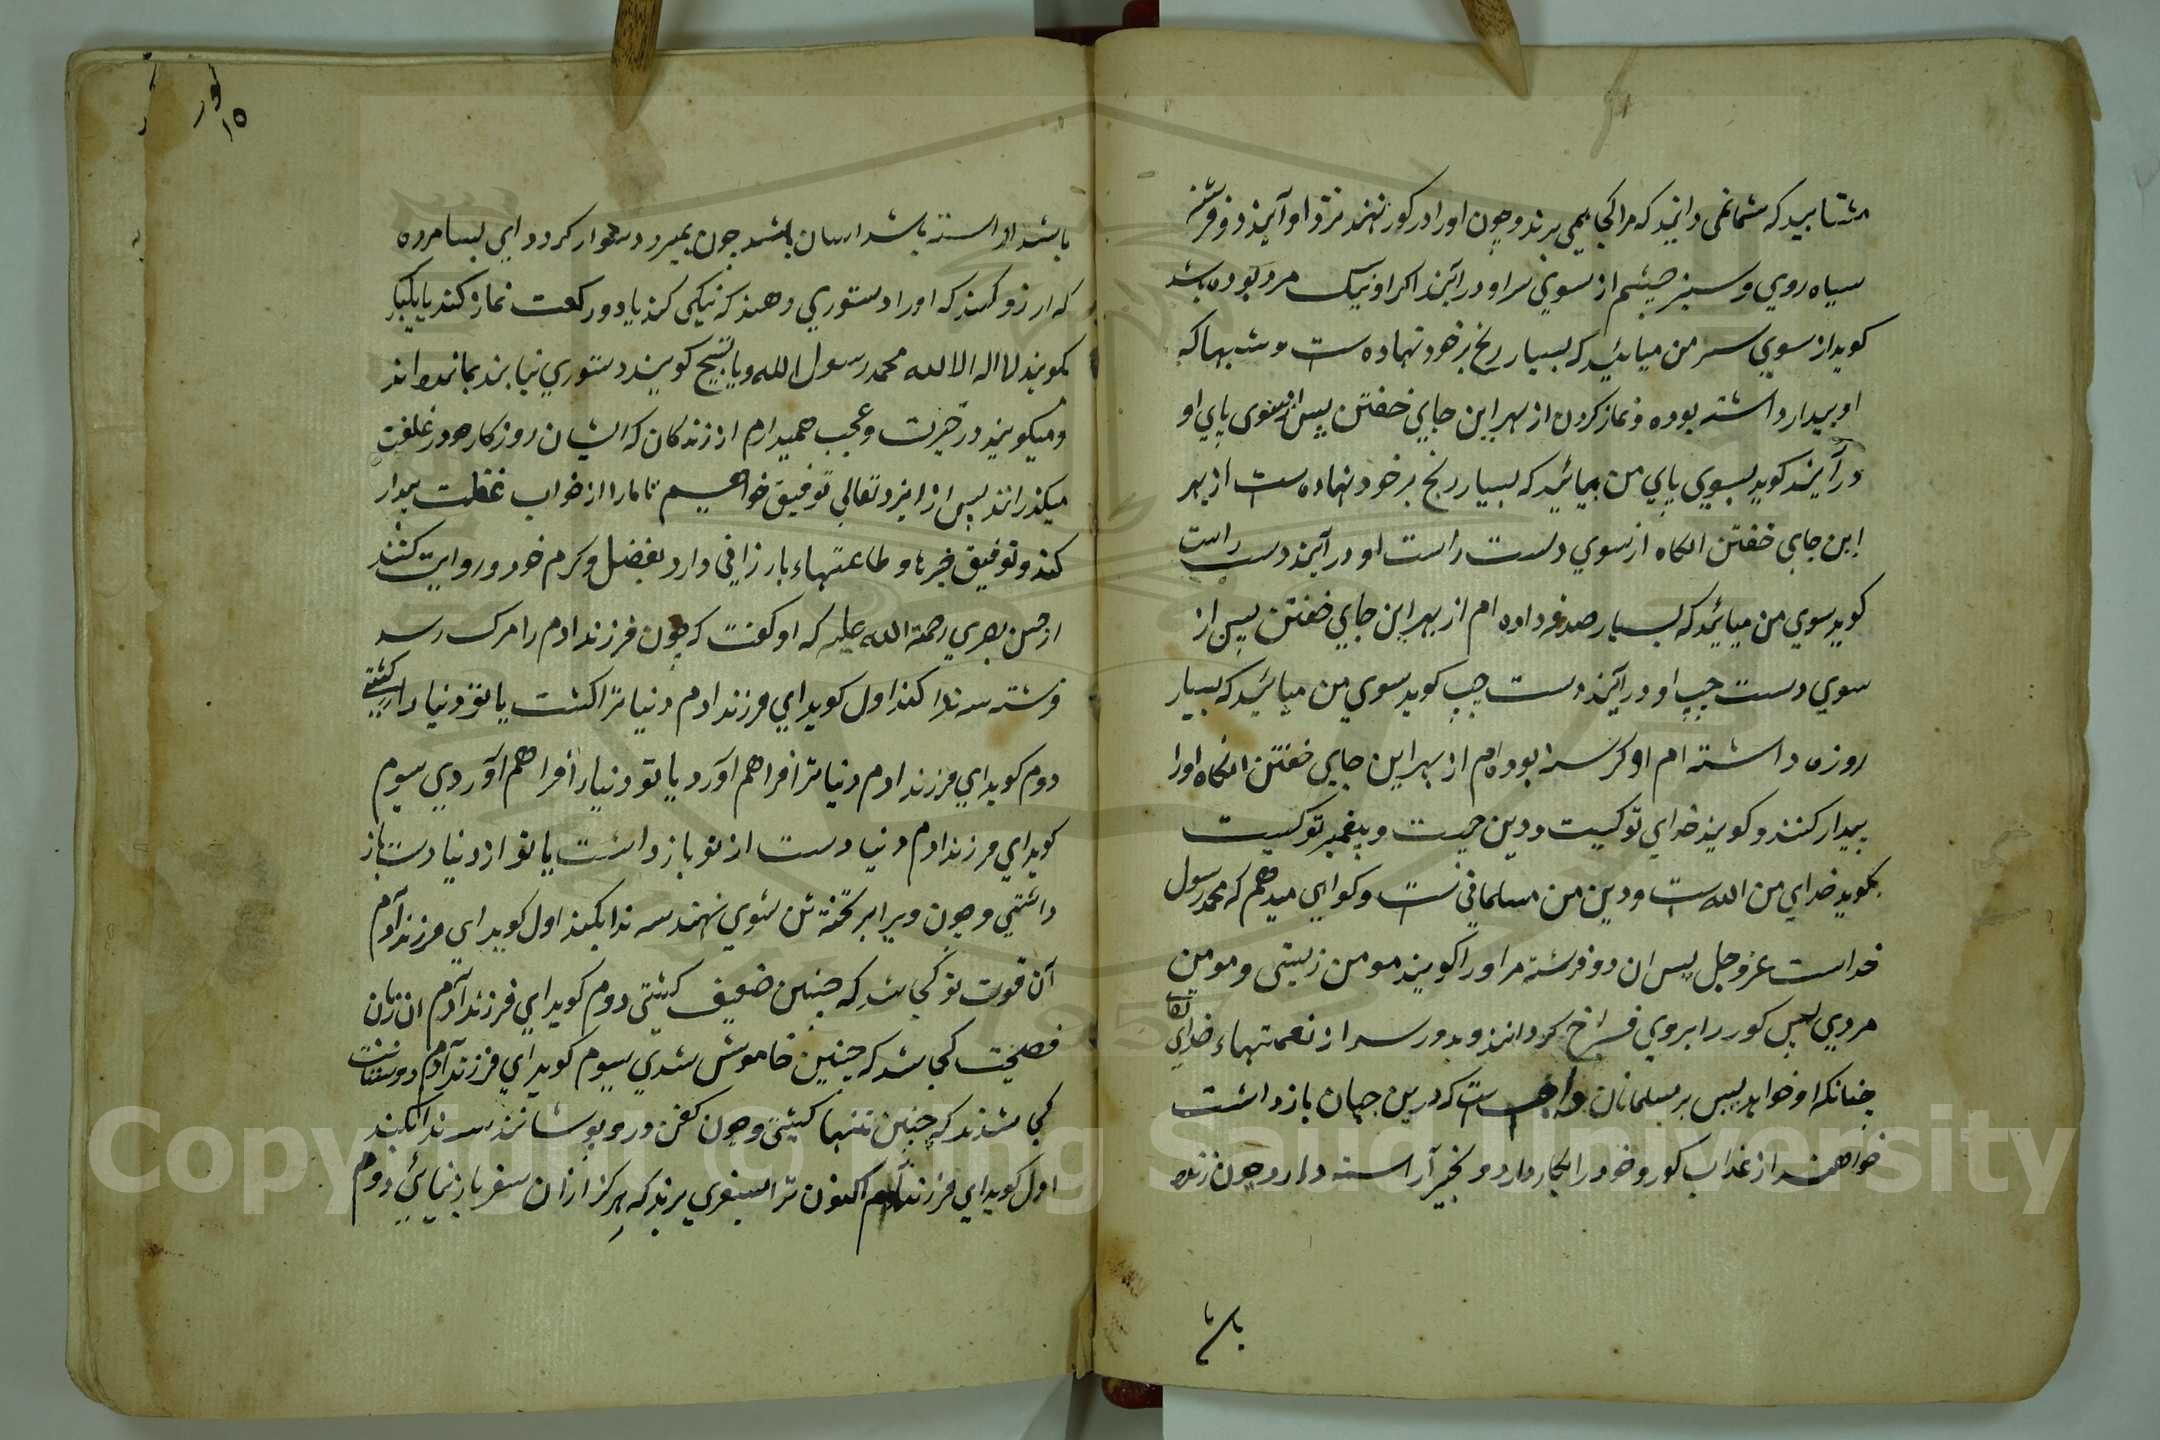 مشتابید که شما نمی دانید که مرا کجا همی برند و چون او را در کور نهند نزد او آیند دو فرشته
سیاه روی و سبز چشم از سوی سر او درآیند اگر او نیک مرد بوده باشد
کوید از سوی سر من میائید که بسیار رنج بر خود نهاده ست و شبها که
او بیدار داشته بوده و نماز کردن از بهر این جای خفتن پس از سوی پای او
درآیند کوید بسوی پای من میائید که بسیار رنج بر خود نهاده ست از بهر
این جای خفتن انکاه از سوی دست راست او درآیند دست راست
کوید سوی من میائید که بسیار صدقه داده ام از بهر این جای خفتن پس از
سوی دست چپ او درآیند دست چپ کوید سوی من میائید که بسیار
روزه داشته ام و کرسنه بوده ام از بهر این جای خفتن انکاه او را
بیدار کنند و کویند خدای تو کیست و دین چیست و پیغمبر تو کیست
بکوید خدای من الله ست و دین من مسلمانی ست و کواهی میدهم که محمد رسول
خداست عز و جل پس ان دو فرشته مر او را کویند مومن زیستی و مومن
مردی پس کور را بروی فراخ کردانند و بدو رسد از نعمتهاء خدای تعالی
چنانکه او خواهد پس بر مسلمانان واجب است که درین جهان بازداشت
خواهند از عذاب کور و خود را بکار دارد و بخیر آراسته دارد و چون زنده
باشد
باشد آراسته باشد اسان باشد چون بمیرد دشوار کردد ای بسا مرده
که ارزو کنند که او را دستوری دهند که نیکی کند یا دو رکعت نماز کند یا یکبار
بکویند لا اله الا الله محمد رسول الله و یا تسبیح کویند دستوری نیابند بمانده اند
و میکویند در حیرت و عجب همیدارم از زندکان که ایشان روزکار خود در غفلت
میکذرانند پس از ایزد تعالی توفیق خواهیم تا ما را از خواب غفلت بیدار
کند و توفیق خیرها و طاعتها ارزانی دارد بفضل و کرم خود و روایت کنند
از حسن بصری رحمة الله علیه که او کفت که چون فرزند ادم را مرک رسد
فرشته سه ندا کند اول کوید ای فرزند ادم دنیا ترا کشت یا تو دنیا را کشتی
دوم کوید ای فرزند ادم دنیا ترا فراهم آورد یا تو دنیا را فراهم آوردی سیوم
کوید ای فرزند ادم دنیا دست از تو بازداشت یا تو از دنیا دست باز
داشتی و چون ویرا بر تخته تن شوی نهند سه ندا بکند اول کوید ای فرزند آدم
آن قوت تو کجا شد که چنین ضعیف کشتی دوم کوید ای فرزند آدم ان زبان
فصیحت کجا شد که چنین خاموش شدی سیوم کوید ای فرزند آدم دوستانت
کجا شدند که چنین تنها کشتی و چون کفن درو پوشانند سه ندا بکند
اول کوید ای فرزند آدم اکنون ترا بسفری برند که هرکز از ان سفر باز نیائی دوم
۱۵
Copyright © King Saud University
1957